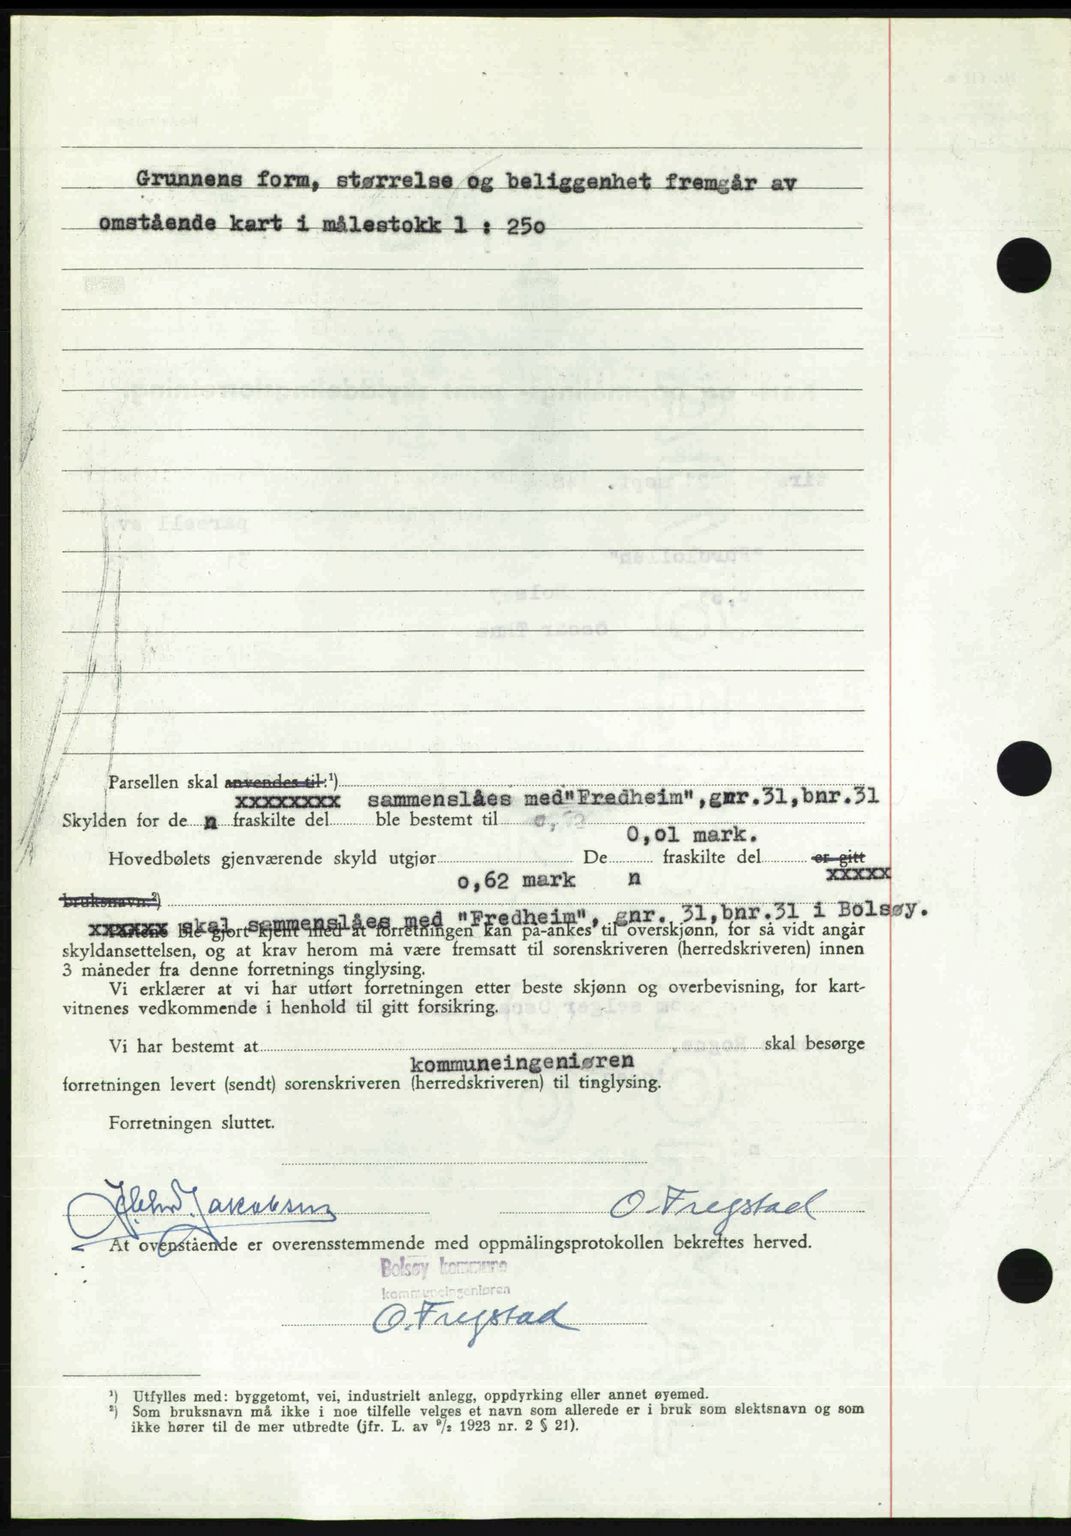 Grunnens form, størrelse og beliggenhet fremgår av
omstående kart i målestokk 1 : 250
Parsellen skal anvendes til:¹)
xxxxxxxx sammenslåes med"Fredheim",gnr.31,bnr.31
Skylden for de n fraskilte del ble bestemt til
0,01 mark.
Hovedbølets gjenværende skyld utgjør De fraskilte del er gitt
0,62 mark n xxxxx
bruksnavn ²)
xxxxxx skal sammenslåes med "Fredheim", gnr. 31,bnr.31 i Bolsøy.
Partene ble gjort kjent med at forretningen kan på-ankes til overskjønn, for så vidt angår
skyldansettelsen, og at krav herom må være fremsatt til sorenskriveren (herredskriveren) innen
3 måneder fra denne forretnings tinglysing.
Vi erklærer at vi har utført forretningen etter beste skjønn og overbevisning, for kart-
vitnenes vedkommende i henhold til gitt forsikring.
Vi har bestemt at skal besørge
kommuneingeniøren
forretningen levert (sendt) sorenskriveren (herredskriveren) til tinglysing.
Forretningen sluttet.
Jakobsen O. Fregstad
At ovenstående er overensstemmende med oppmålingsprotokollen bekreftes herved.
Bolsøy kommune
kommuneingeniøren
O. Fregstad
¹) Utfylles med: byggetomt, vei, industrielt anlegg, oppdyrking eller annet øyemed.
²) Som bruksnavn må ikke i noe tilfelle velges et navn som allerede er i bruk som slektsnavn og som
ikke hører til de mer utbredte (jfr. L. av ⁹/₂ 1923 nr. 2 § 21).